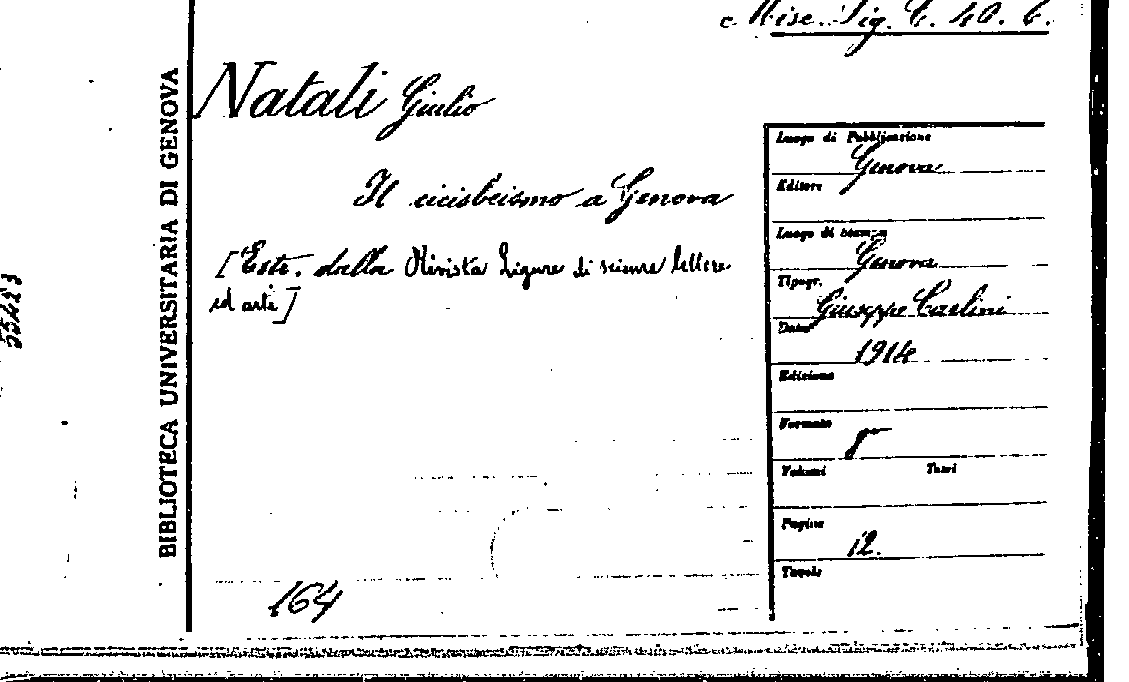 Misc. Lig. C. 40. 6.
BIBLIOTECA UNIVERSITARIA DI GENOVA
Natali Giulio
Il cicisbeismo a Genova
[Estr. dalla Rivista Ligure di scienze lettere
ed arti]
164
Luogo di Pubblicazione
Genova
Editore
Luogo di stampa
Genova
Tipogr.
Giuseppe Carlini
Data
1914
Edizione
Formato
8°
Volumi Tomi
Pagine
12.
Tavole